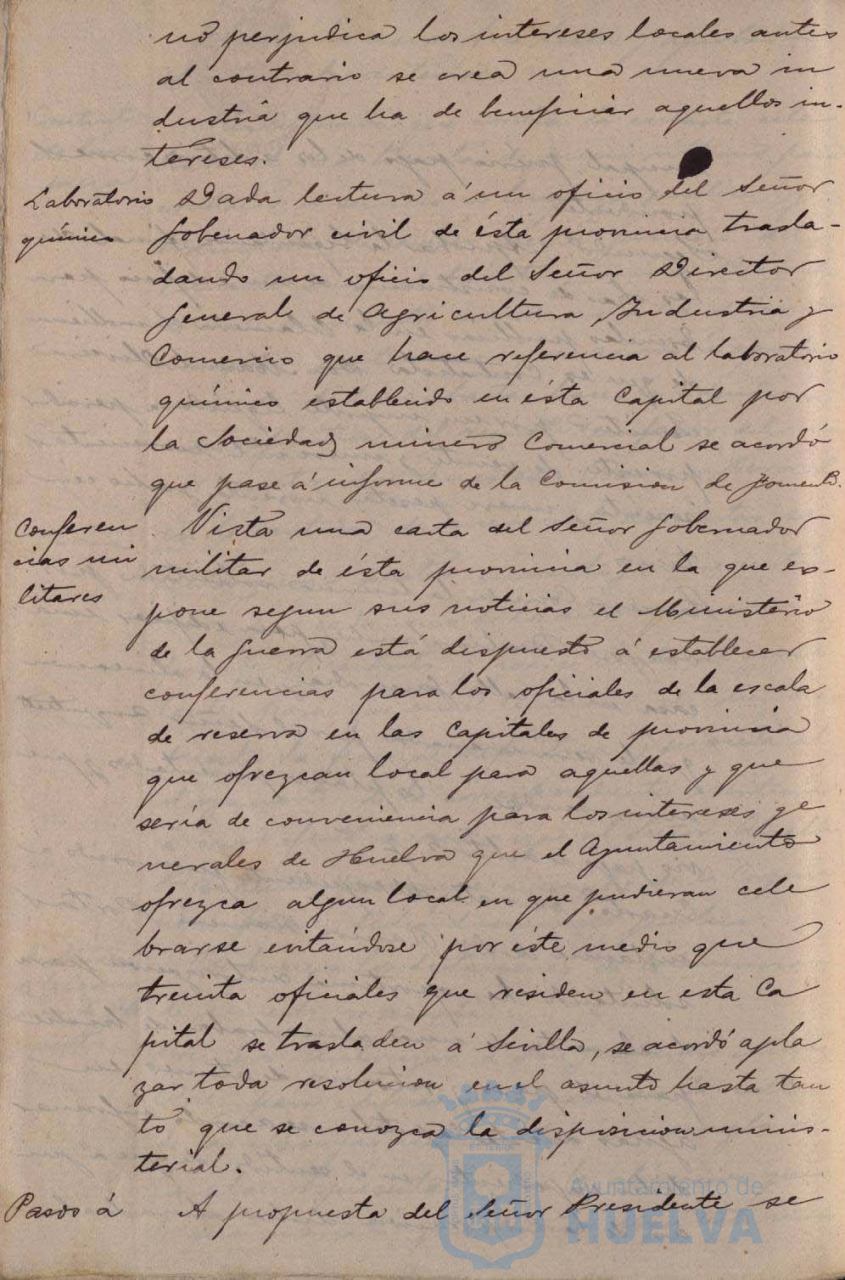 no perjudica los intereses locales antes
al contrario se crea una nueva in
dustria que ha de beneficiar aquellos in-
tereses.
Laboratorio
químico
Dada lectura á un oficio del Señor
Gobenador civil de ésta provincia trasla-
dando un oficio del Señor Director
General de Agricultura, Industria y
Comercio que hace referencia al laboratorio
químico establecido en ésta Capital por
la Sociedad minero Comercial se acordó
que pase á informe de la Comision de Fomento.
Conferen
cias mi
litares
Vista una carta del Señor Gobernador
militar de ésta provincia en la que ex-
pone segun sus noticias el Ministerio
de la Guerra está dispuesto á establecer
conferencias para los oficiales de la escala
de reserva en las Capitales de provincia
que ofrezcan local para aquellas y que
sería de conveniencia para los intereses ge
nerales de Huelva que el Ayuntamiento
ofrezca algun local en que pudieran cele
brarse evitandose por éste medio que
treinta oficiales que residen en esta Ca
pital se trasladen á Sevilla, se acordó apla
zar toda resolucion en el asunto hasta tan
to que se conozca la disposicion minis-
terial.
Pasos á
A propuesta del Señor Presidente se
Ayuntamiento de
HUELVA